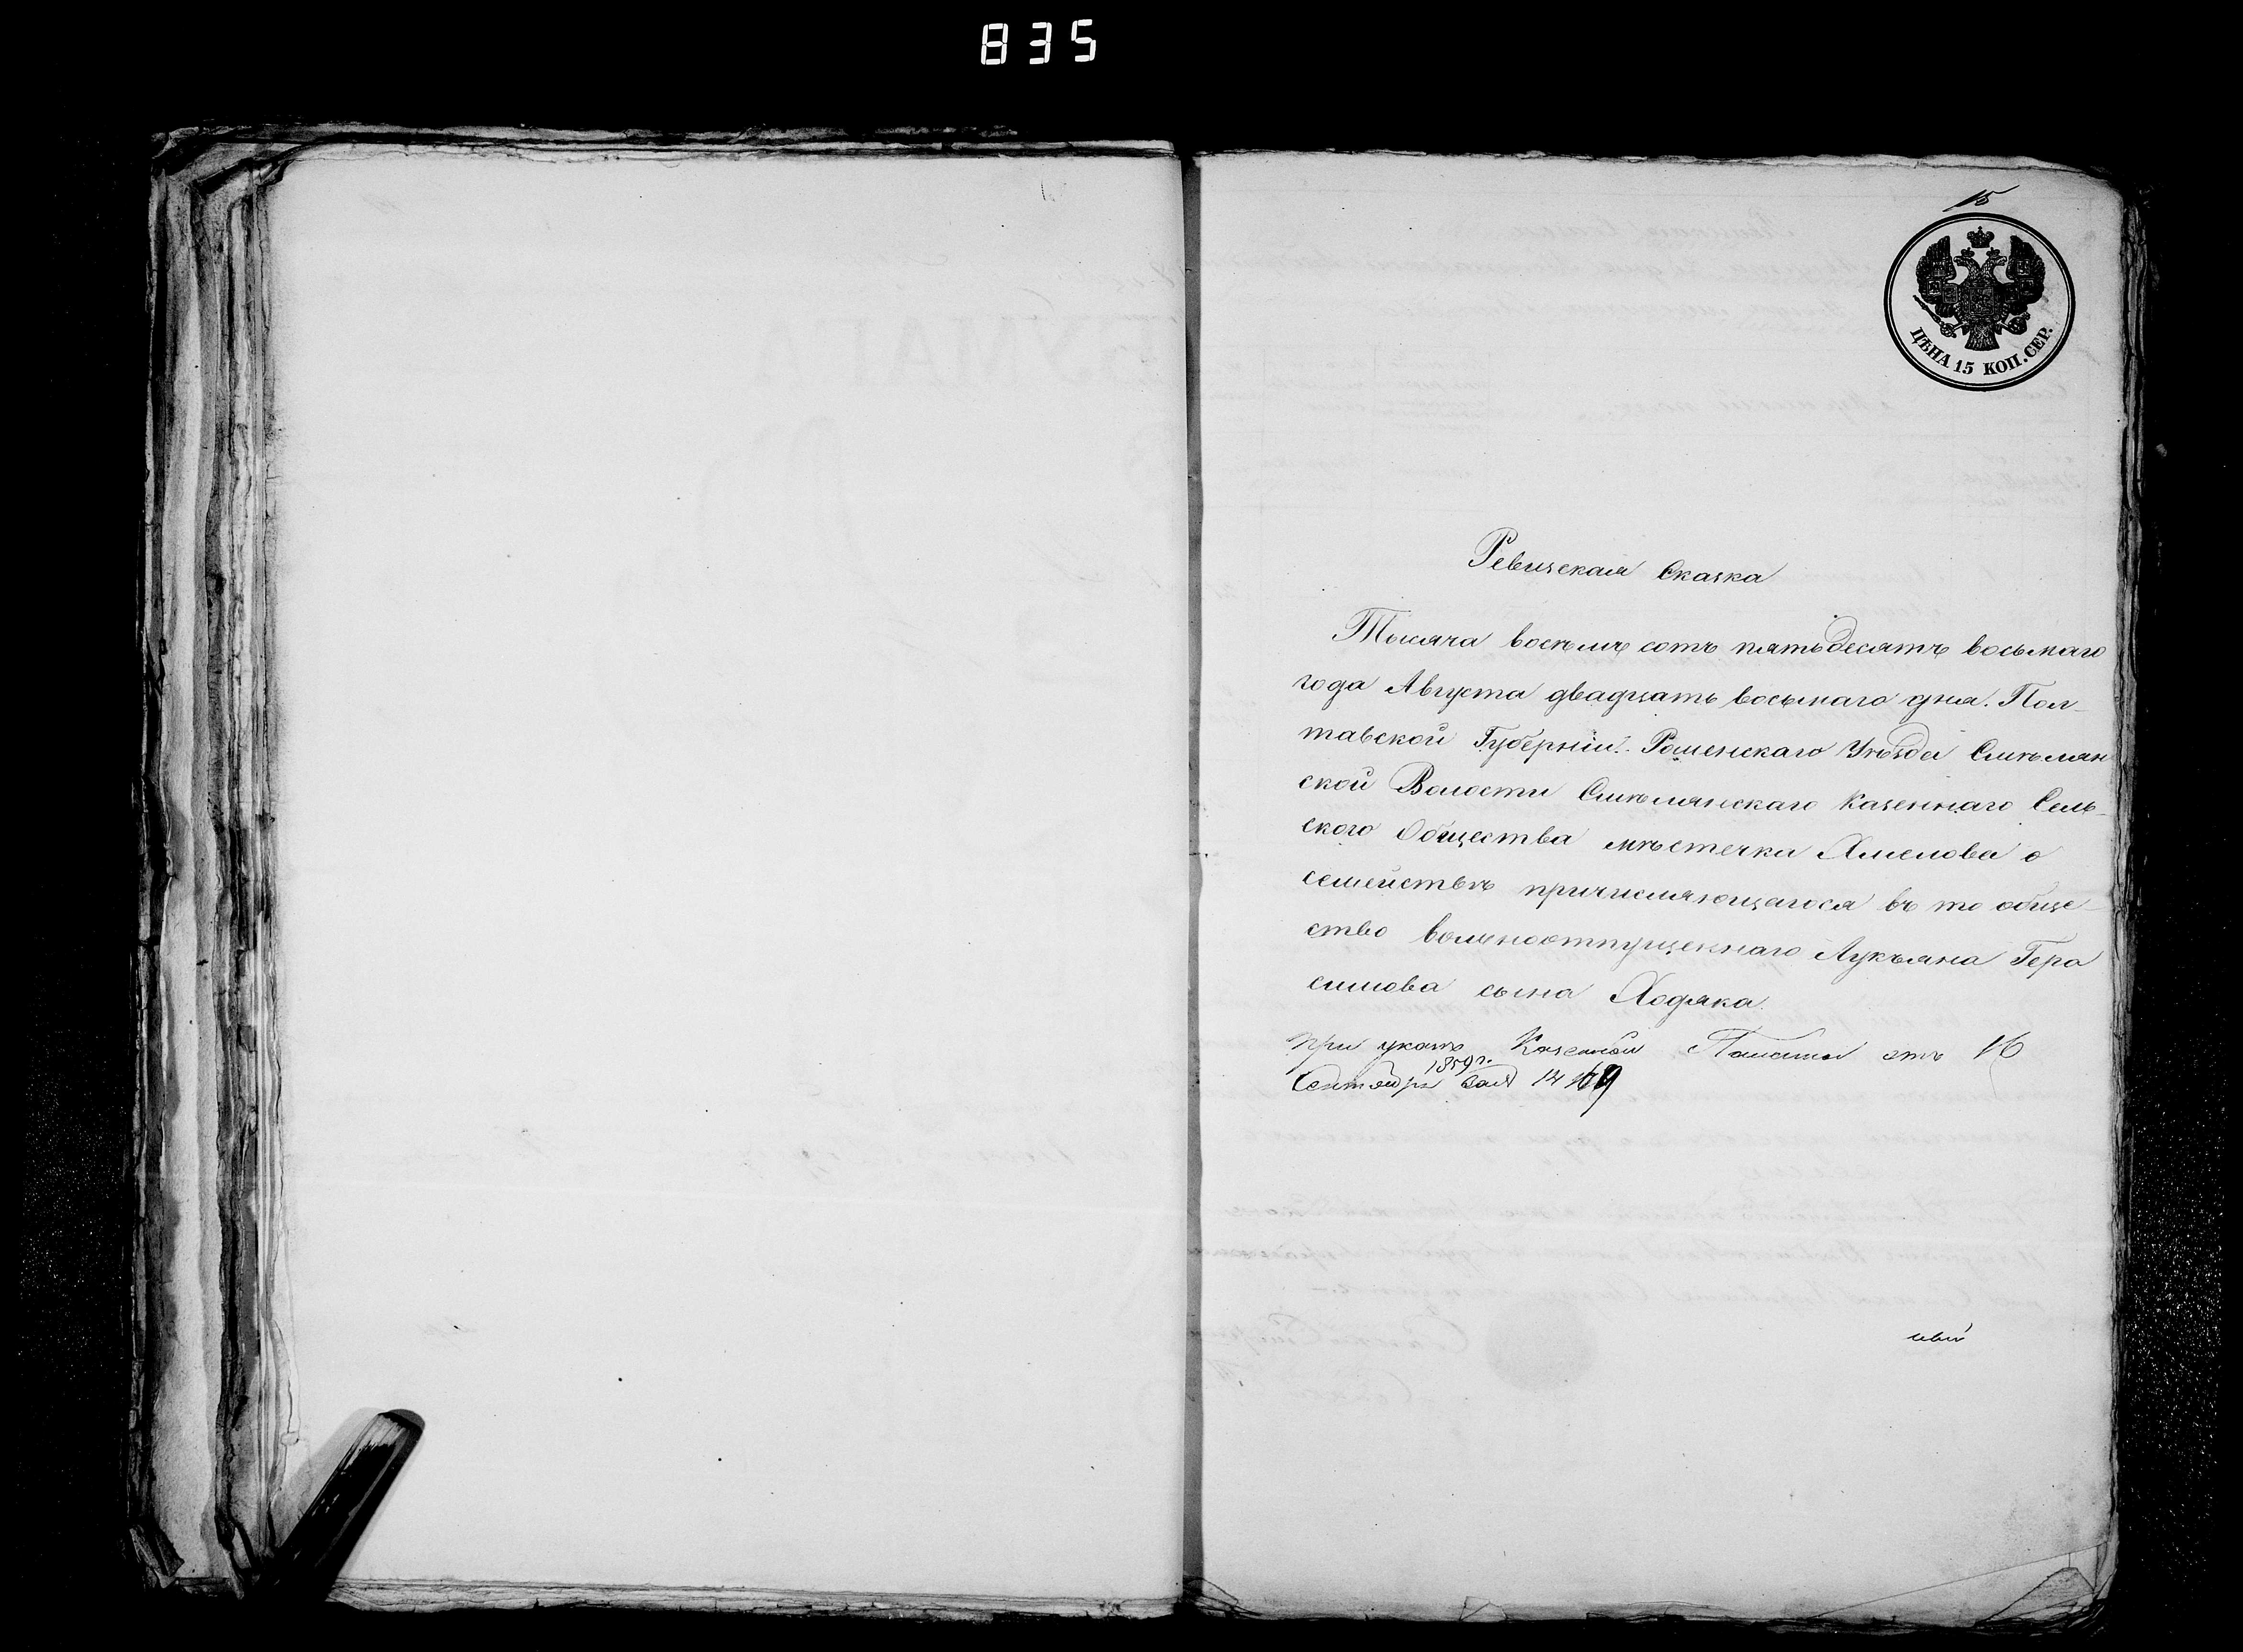 835
15
ЦѢНА 15 КОП. СЕР.
Ревизская Сказка
Тысяча восемь сотъ пятьдесятъ восьмаго
года Августа двадцать восьмаго дня. Пол-
тавской Губерніи. Роменскаго Уѣзда Смѣлян
ской Волости Смѣлянскаго Казеннаго Сель-
ского Общества мѣстечка Хмелова о
семействѣ причисляющагося въ то обще-
ство вольноотпущеннаго Лукьяна Гера
симова сына Ходяка.
при указѣ Казенной Палаты отъ 16
1859 г.
Сентября За №